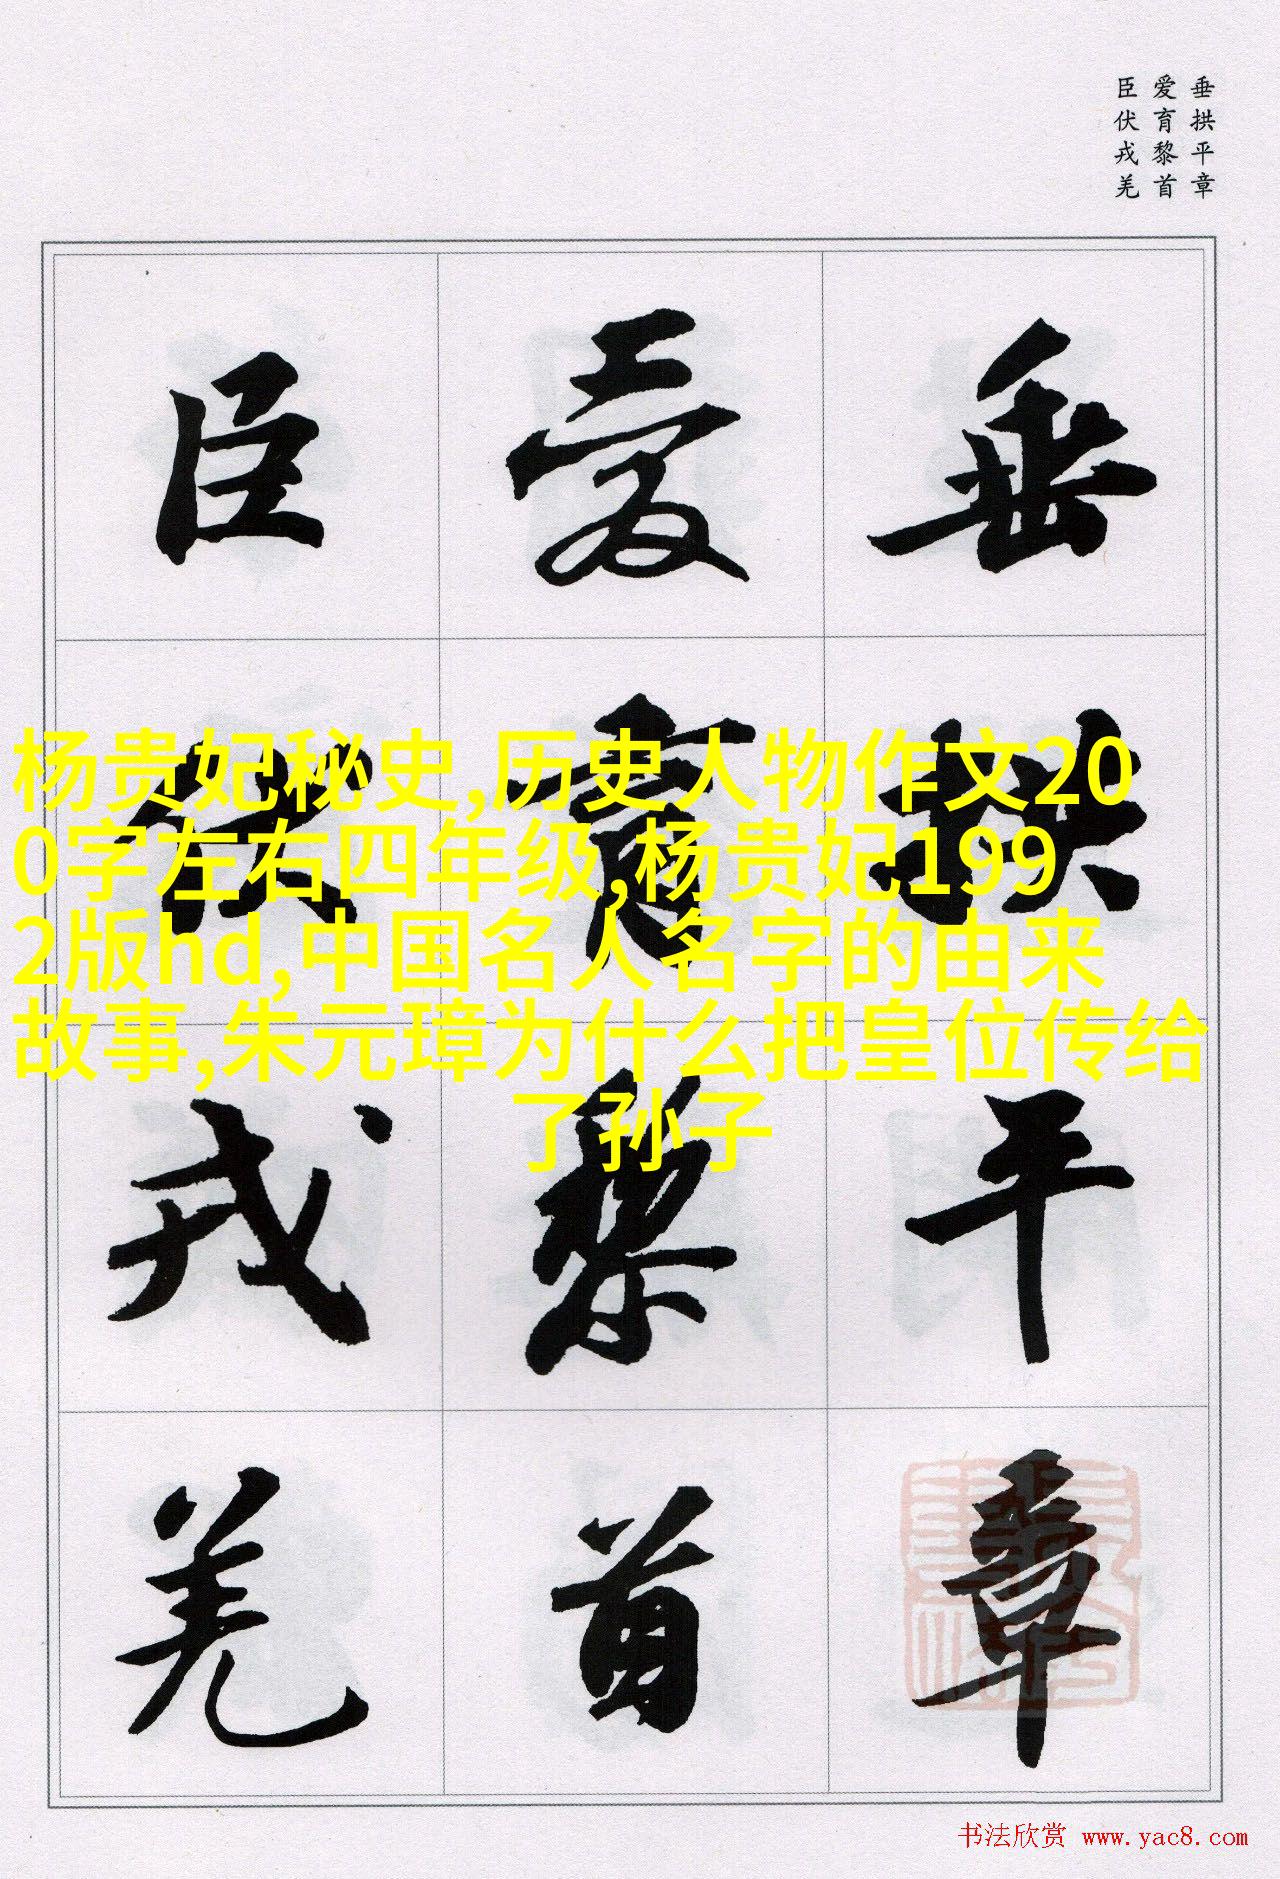 垂拱平章
爱育黎首
臣伏戎羌
垂拱平章
爱育黎首
臣伏戎羌
杨贵妃秘史,历史人物作文20
0字左右四年级,杨贵妃199
2版hd,中国名人名字的由来
故事,朱元璋为什么把皇位传给
了孙子
书法欣赏 www.yac8.com